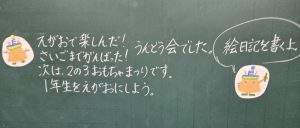 えがおで楽しんだ!
さいごまでがんばった!
うんどう会でした。
次は、2の3おもちゃまつりです。
1年生をえがおにしよう。
絵日記を書く上